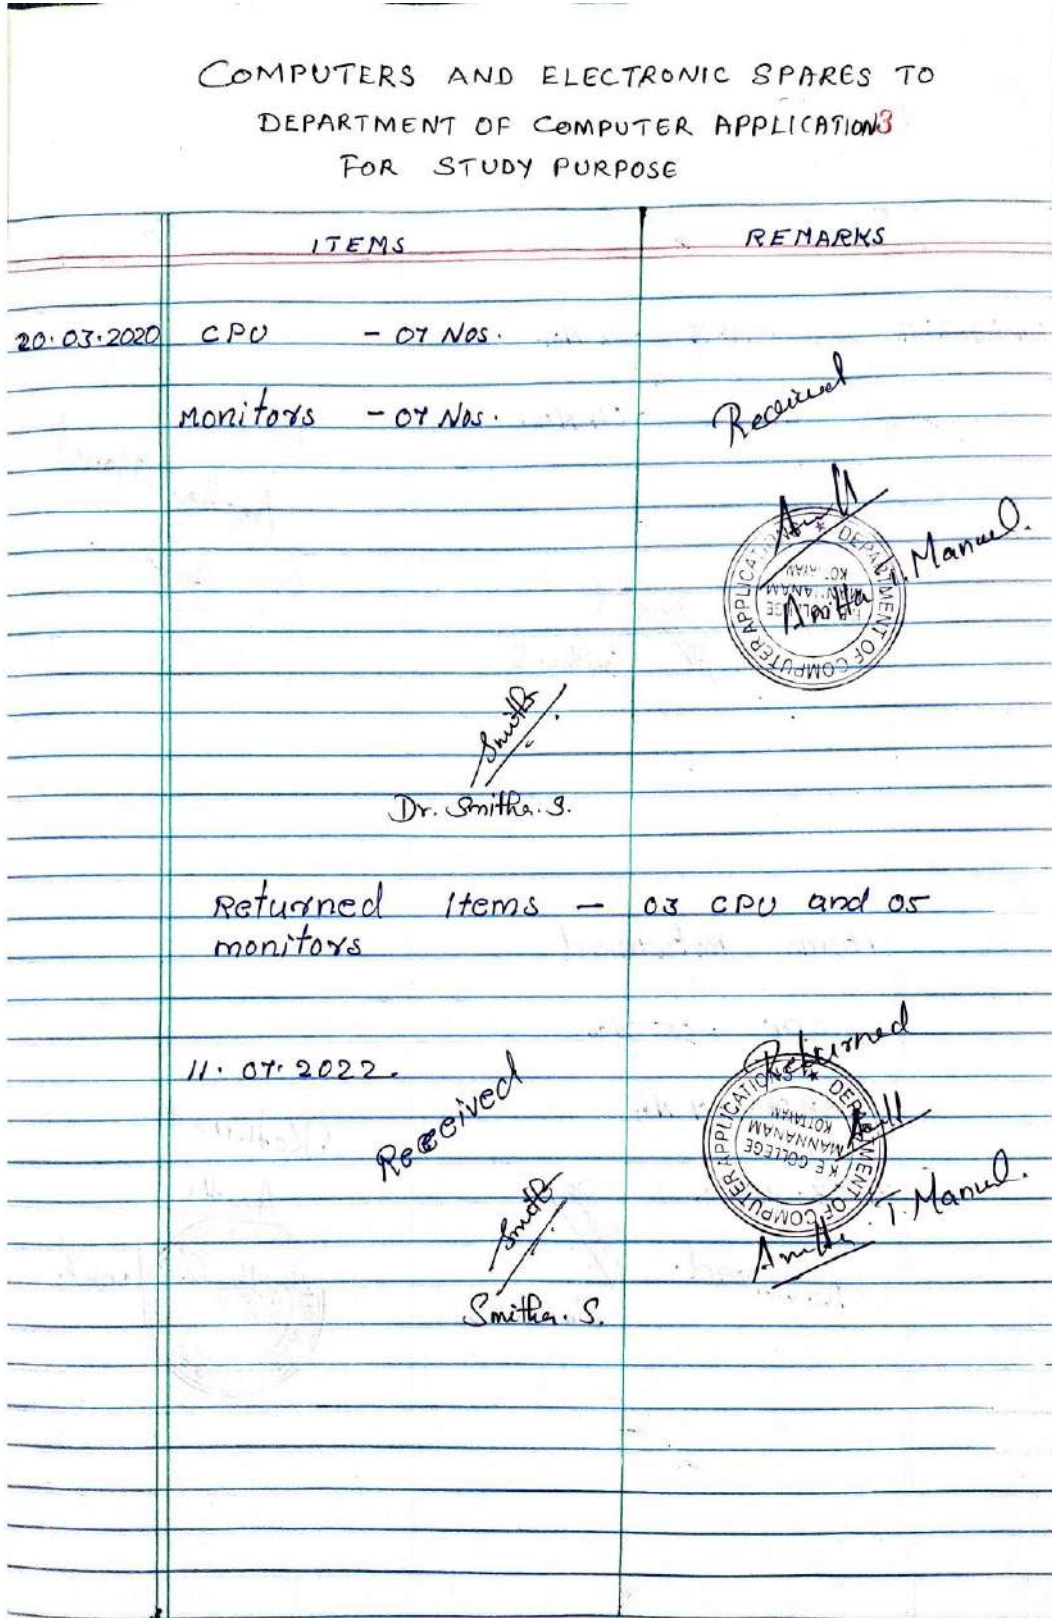 COMPUTERS AND ELECTRONIC SPARES TO
DEPARTMENT OF COMPUTER APPLICATIONS
FOR STUDY PURPOSE
ITEMS REMARKS
20.03.2020 CPU - 07 Nos.
Monitors - 07 Nos.
Received
DEPARTMENT OF COMPUTER APPLICATIONS
MANNANAM
KOTTAYAM
Anitha T. Manuel.
Smitha
Dr. Smitha. S.
Returned Items - 03 CPU and 05
monitors
11.07.2022.
Received
Returned
DEPARTMENT OF COMPUTER APPLICATIONS
K.E COLLEGE
MANNANAM
KOTTAYAM
Anitha T. Manuel.
Smitha
Smitha. S.